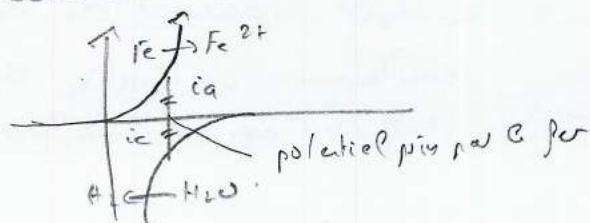 Fe → Fe 2+
ia
ic
potentiel pris par le fer
H2 ← H2O